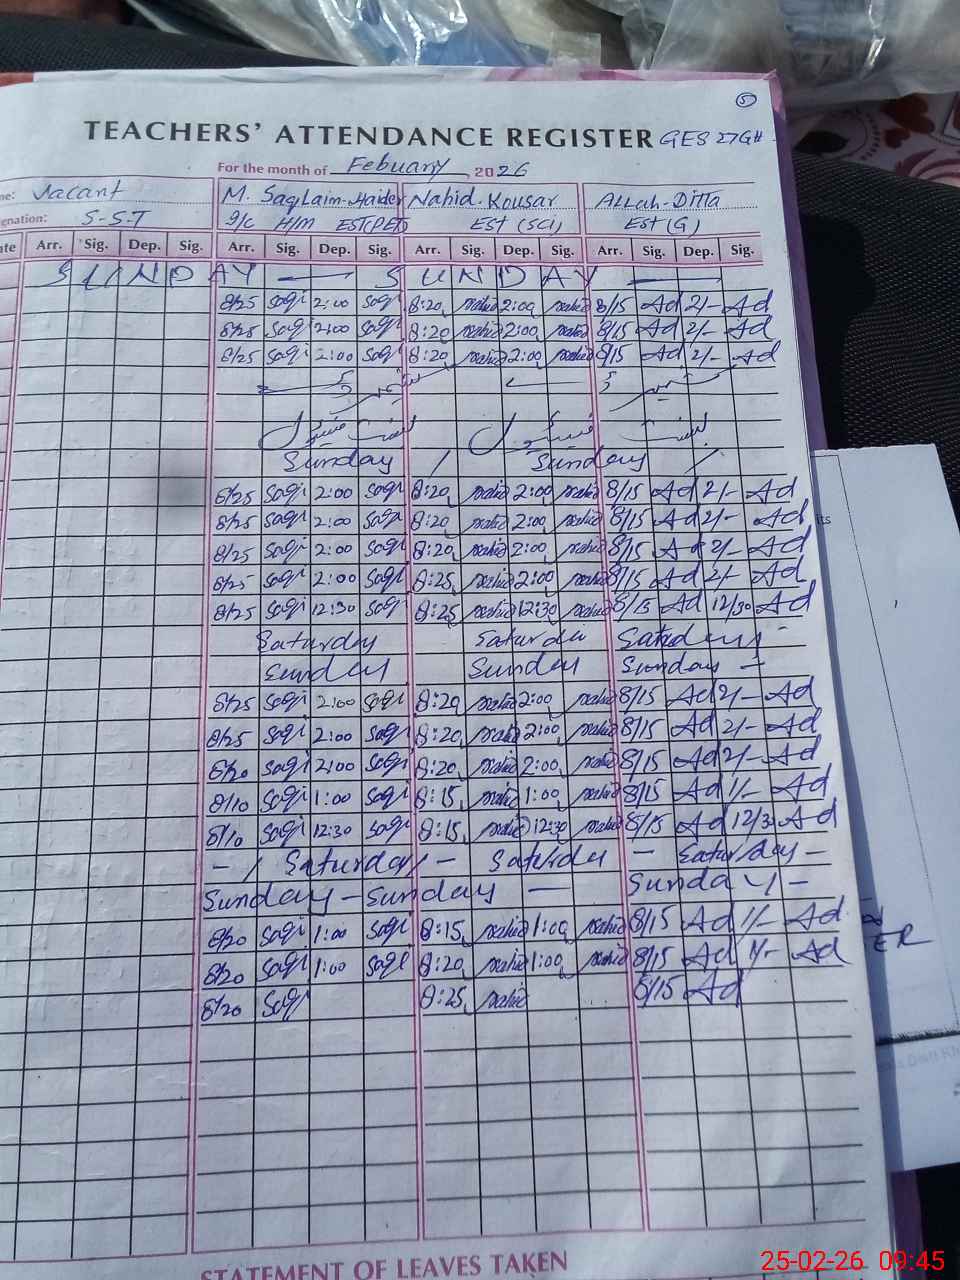 5
TEACHERS' ATTENDANCE REGISTER GES 27GH
For the month of Febuary, 2026
me: Vacant M. Saqlaim-Haider Nahid-Kousar Allah-Ditta
enation: S-S-T I/C H/M EST(PET) EST (SCI) EST (G)
ate Arr. Sig. Dep. Sig. Arr. Sig. Dep. Sig. Arr. Sig. Dep. Sig. Arr. Sig. Dep. Sig.
SUNDAY — SUNDAY —
8/25 Saqi 2:00 Saqi 8:20 nahid 2:00 nahid 8/15 Ad 2/- Ad
8/25 Saqi 2:00 Saqi 8:20 nahid 2:00 nahid 8/15 Ad 2/- Ad
8/25 Saqi 2:00 Saqi 8:20 nahid 2:00 nahid 8/15 Ad 2/- Ad
Sunday / Sunday /
8/25 Saqi 2:00 Saqi 8:20 nahid 2:00 nahid 8/15 Ad 2/- Ad
8/25 Saqi 2:00 Saqi 8:20 nahid 2:00 nahid 8/15 Ad 2/- Ad
8/25 Saqi 2:00 Saqi 8:20 nahid 2:00 nahid 8/15 Ad 2/- Ad
8/25 Saqi 2:00 Saqi 8:25 nahid 2:00 nahid 8/15 Ad 2/- Ad
8/25 Saqi 12:30 Saqi 8:25 nahid 12:30 nahid 8/15 Ad 12/30 Ad
Saturday Saturda Satuday -
Sunday Sunday Sunday -
8/25 Saqi 2:00 Saqi 8:20 nahid 2:00 nahid 8/15 Ad 2/- Ad
8/25 Saqi 2:00 Saqi 8:20 nahid 2:00 nahid 8/15 Ad 2/- Ad
8/20 Saqi 2:00 Saqi 8:20 nahid 2:00 nahid 8/15 Ad 2/- Ad
8/10 Saqi 1:00 Saqi 8:15 nahid 1:00 nahid 8/15 Ad 1/- Ad
8/10 Saqi 12:30 Saqi 8:15 nahid 12:30 nahid 8/15 Ad 12/30 Ad
- / Saturday / - Saturday - Saturday -
Sunday - Sunday — Sunday -
8/20 Saqi 1:00 Saqi 8:15 nahid 1:00 nahid 8/15 Ad 1/- Ad
8/20 Saqi 1:00 Saqi 8:20 nahid 1:00 nahid 8/15 Ad 1/- Ad
8/20 Saqi 8:25 nahid 8/15 Ad
STATEMENT OF LEAVES TAKEN
its
ER
25-02-26 09:45